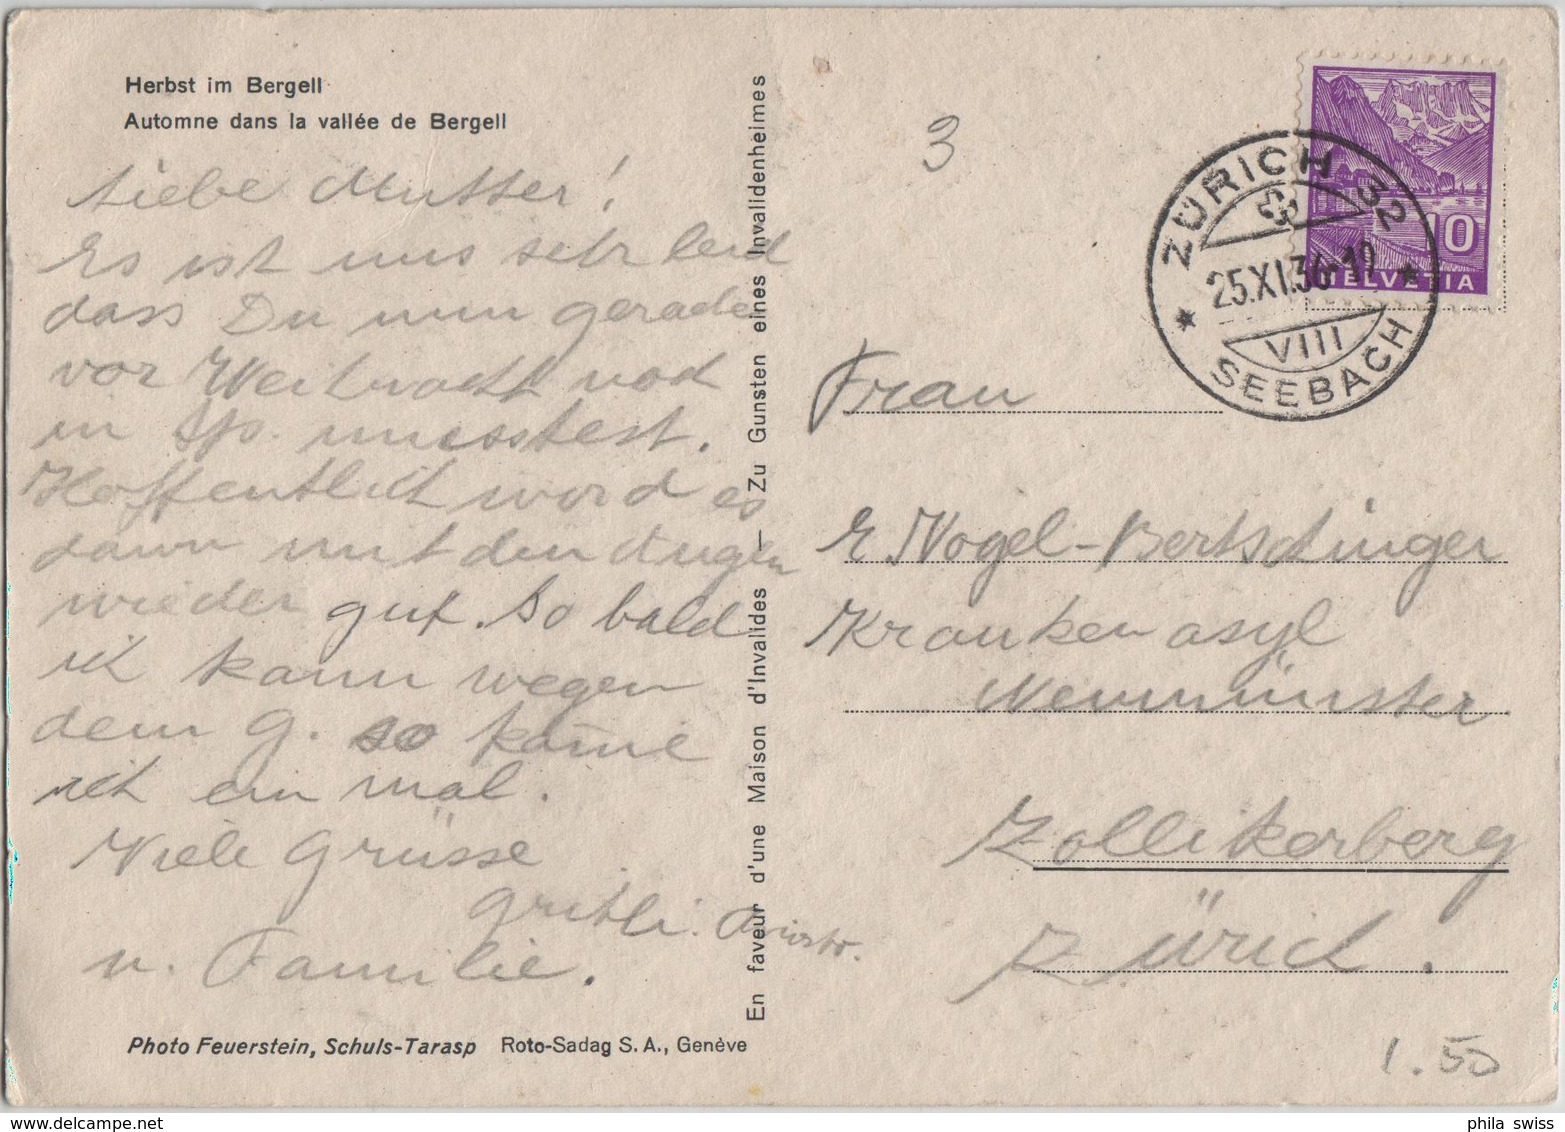 Herbst im Bergell
Automne dans la vallée de Bergell
Liebe Mutter!
Es ist uns sehr leid
dass Du nun gerade
vor Weihnacht noch
in Sp. muesstest.
Hoffentlich word es
dann mit den Augen
wieder gut. So bald
ich kann wegen
dem G. so käme
ich ein mal.
Viele Grüsse
Gritli.
u. Familie.
Photo Feuerstein, Schuls-Tarasp Roto-Sadag S.A., Genève
En faveur d'une Maison d'Invalides — Zu Gunsten eines Invalidenheimes
3
ZÜRICH 32
25.XI.36-19
VIII
SEEBACH
10
HELVETIA
Frau
E. Vogel-Bertschinger
Krankenasyl
Neumünster
Zollikerberg
Zürich.
1.50
phila swiss